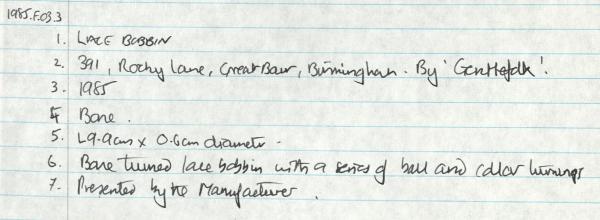 1985.F.03.3
1. LACE BOBBIN
2. 391, Rocky Lane, Great Barr, Birmingham. By '
3. 1985
4 Bone.
5. L9.9cm x 0.6cm diameter.
6. Bone turned lace bobbin with a series of ball and collar turnings
7. Presented by the Manufacturer.